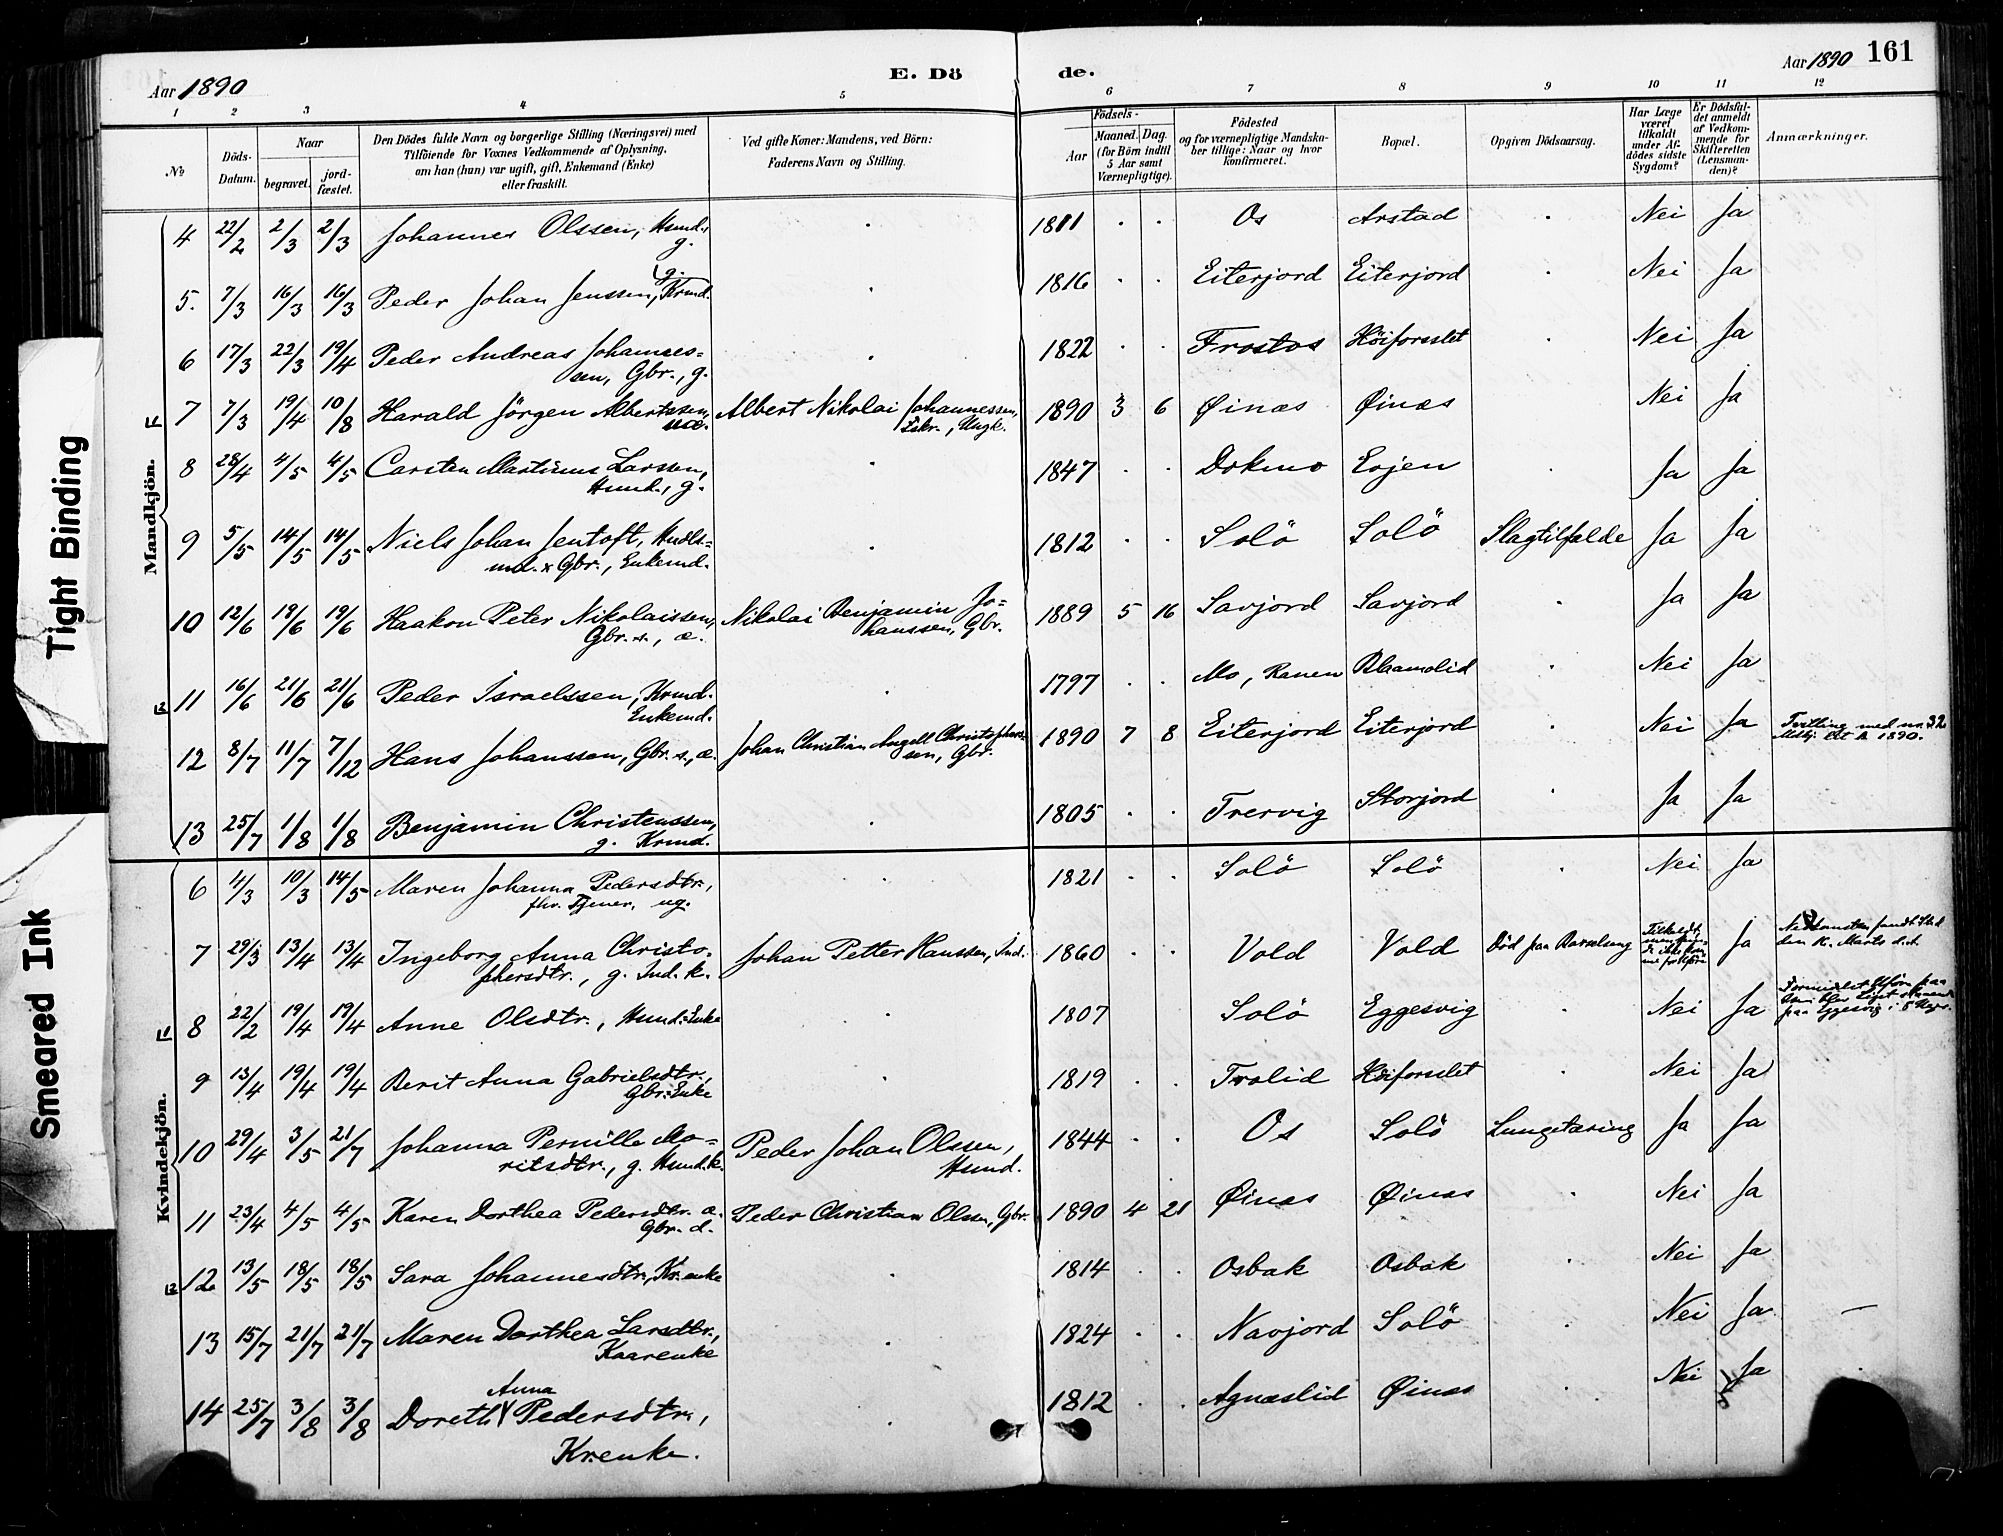 Aar 1890
E. Dö
de.
Aar 1890 161
1 2 3 4 5 6 7 8 9 10 11 12
No
Döds-Datum.
Naar
begravet.
jord-fæstet.
Den Dödes fulde Navn og borgerlige Stilling (Næringsvei) med
Tilföiende for Voxnes Vedkommende af Oplysning,
om han (hun) var ugift, gift, Enkemand (Enke)
eller fraskilt.
Ved gifte Koner: Mandens, ved Börn:
Faderens Navn og Stilling.
Födsels-
Aar
Maaned. Dag.
(for Börn indtil
5 Aar samt
Værnepligtige).
Födested
og for værnepligtige Mandska-
ber tillige: Naar og hvor
konfirmeret.
Bopæl.
Opgiven Dödsaarsag.
Har Læge
været
tilkaldt
under Af-
dödes sidste
Sygdom?
Er Dödsfal-
det anmeldt
af Vedkom-
mende for
Skifteretten
(Lensman-
den)?
Anmærkninger.
Tight Binding
Smeared Ink
Mandkjön.
4 22/2 2/3 2/3 Johannes Olssen, Husmd., 1811 Os Arstad Nei Ja
g.
g.
5. 7/3 16/3 16/3 Peder Johan Jenssen, Krmd. 1816 Eiterjord Eiterjord Nei Ja
6 17/3 22/3 19/4 Peder Andreas Johannes= 1822 Frostos Höiforslet Nei Ja
sen, Gbr., g.
7 7/3 19/4 10/8 Harald Jörgen Albertssen, Albert Nikolai Johannessen, 1890 3 6 Øinæs Øinæs Nei Ja
uæ. Iskr., Ungk.
8 28/4 4/5 4/5 Carsten Martinus Larssen, 1847 Dokmo Evjen Ja Ja
Husmd., g.
9 5/5 14/5 14/5 Niels Johan Jentoft, Hndls= 1812 Solö Solö Slagtilfælde Ja Ja
md. & Gbr., Enkemd.
10 12/6 19/6 19/6 Haakon Peter Nikolaissen, Nikolai Benjamin Jo= 1889 5 16 Savjord Savjord Ja Ja
Gbr. s., æ. hanssen, Gbr.
11 16/6 21/6 21/6 Peder Israelssen, Krmd. 1797 Mo, Ranen Blaamolid Nei Ja
Enkemd.
12 8/7 11/7 7/12 Hans Johanssen, Gbr. s., æ. Johan Christian Angell Christophers= 1890 7 8 Eiterjord Eiterjord Nei Ja Tvilling med nr. 32
sen, Gbr. 1890.
13 25/7 1/8 1/8 Benjamin Christenssen, 1805 Trervig Storjord Ja Ja
g. Krmd.
Kvindekjön.
6 4/3 10/3 14/5 Maren Johanna Pedersdtr., 1821 Solö Solö Nei Ja
fhv. Tjener, ug.
7 29/3 13/4 13/4 Ingeborg Anna Christo= Johan Petter Hanssen, Ind. 1860 Vold Vold Död paa Barselseng Tilkaldt, Ja
phersdtr., g. Ind. k.
8 22/2 19/4 19/4 Anne Olsdtr., Husmd. Enke 1807 Solö Eggesvig Nei Ja
9 13/4 19/4 19/4 Berit Anna Gabrielsdtr., 1819 Trolid Höiforslet Nei Ja
Gbr. Enke
10 29/4 3/5 21/7 Johanna Pernille Mo= Peder Johan Olssen, 1844 Os Solö Lungetæring Ja Ja
ritsdtr., g. Husmd. k. Husmd.
11 23/4 4/5 4/5 Karen Dorthea Pedersdtr. æ. Peder Christian Olssen, Gbr. 1890 4 21 Øinæs Øinæs Nei Ja
Gbr. d.
12 13/5 18/5 18/5 Sara Johannesdtr., Kr. enke 1814 Osbak Osbak Nei Ja
13 15/7 21/7 21/7 Maren Dorthea Larsdtr., 1824 Navjord Solö Nei Ja
Kaarenke
Anna
14 25/7 3/8 3/8 Doreth Pedersdtr., 1812 Agnæslid Øinæs Nei Ja
Kr. enke.